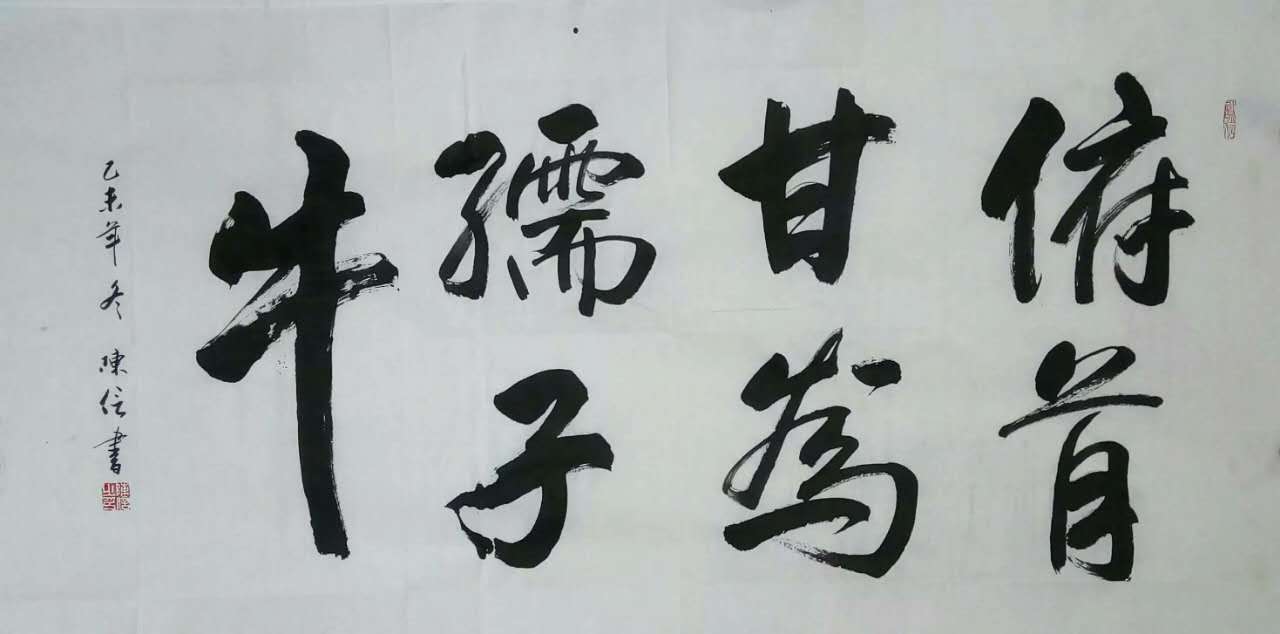 俯首
甘為
孺子
牛
乙未年 冬 陳信書